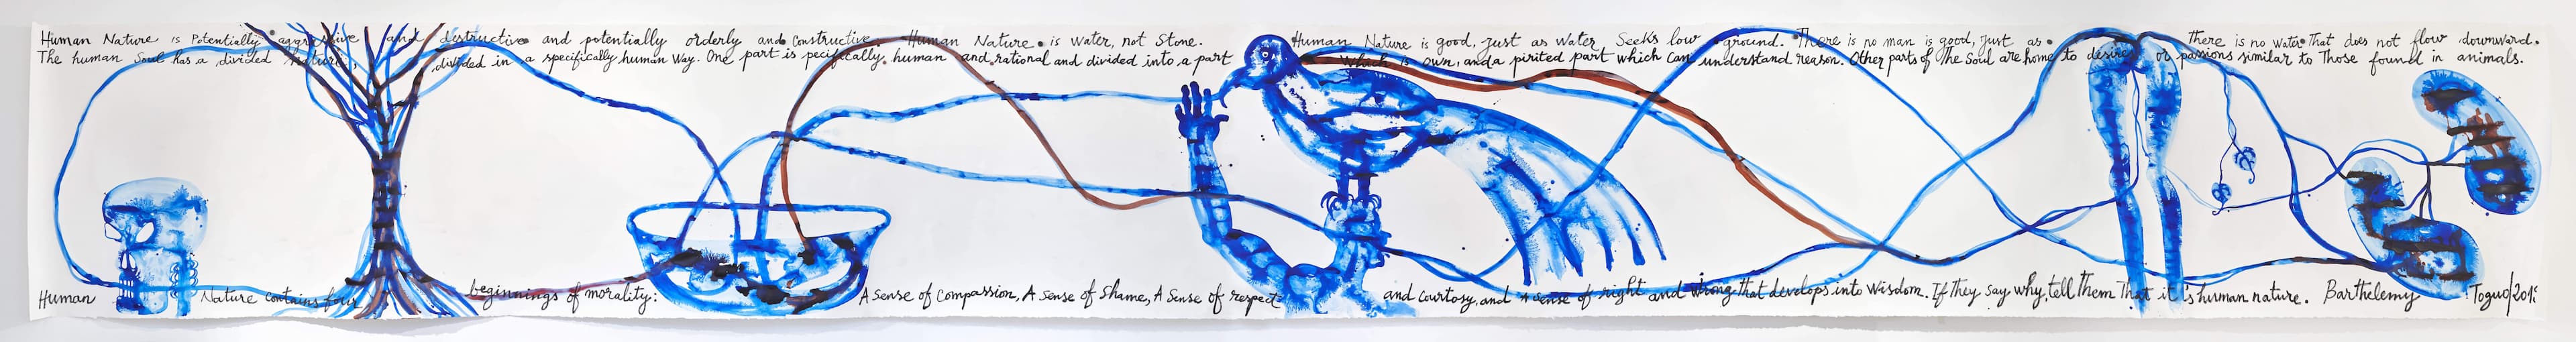 Human Nature is Potentially aggressive and destructive and potentially orderly and constructive Human Nature is water, not Stone. Human Nature is good, just as water Seeks low ground. There is no man is good, just as There is no water That does not flow downward.
The human Soul has a divided Nature, divided in a specifically human way. One part is pecifically human and rational and divided into a part which is own, and a pirited part which can understand reason. Other parts of The Soul are home to desires or passions similar to Those found in animals.
Human Nature contains four beginnings of morality: A sense of compassion, A sense of Shame, A Sense of respect and courtosy, and A sense of right and wrong that develops into wisdom. If They say why, tell Them That it's human nature. Barthelemy Toguo